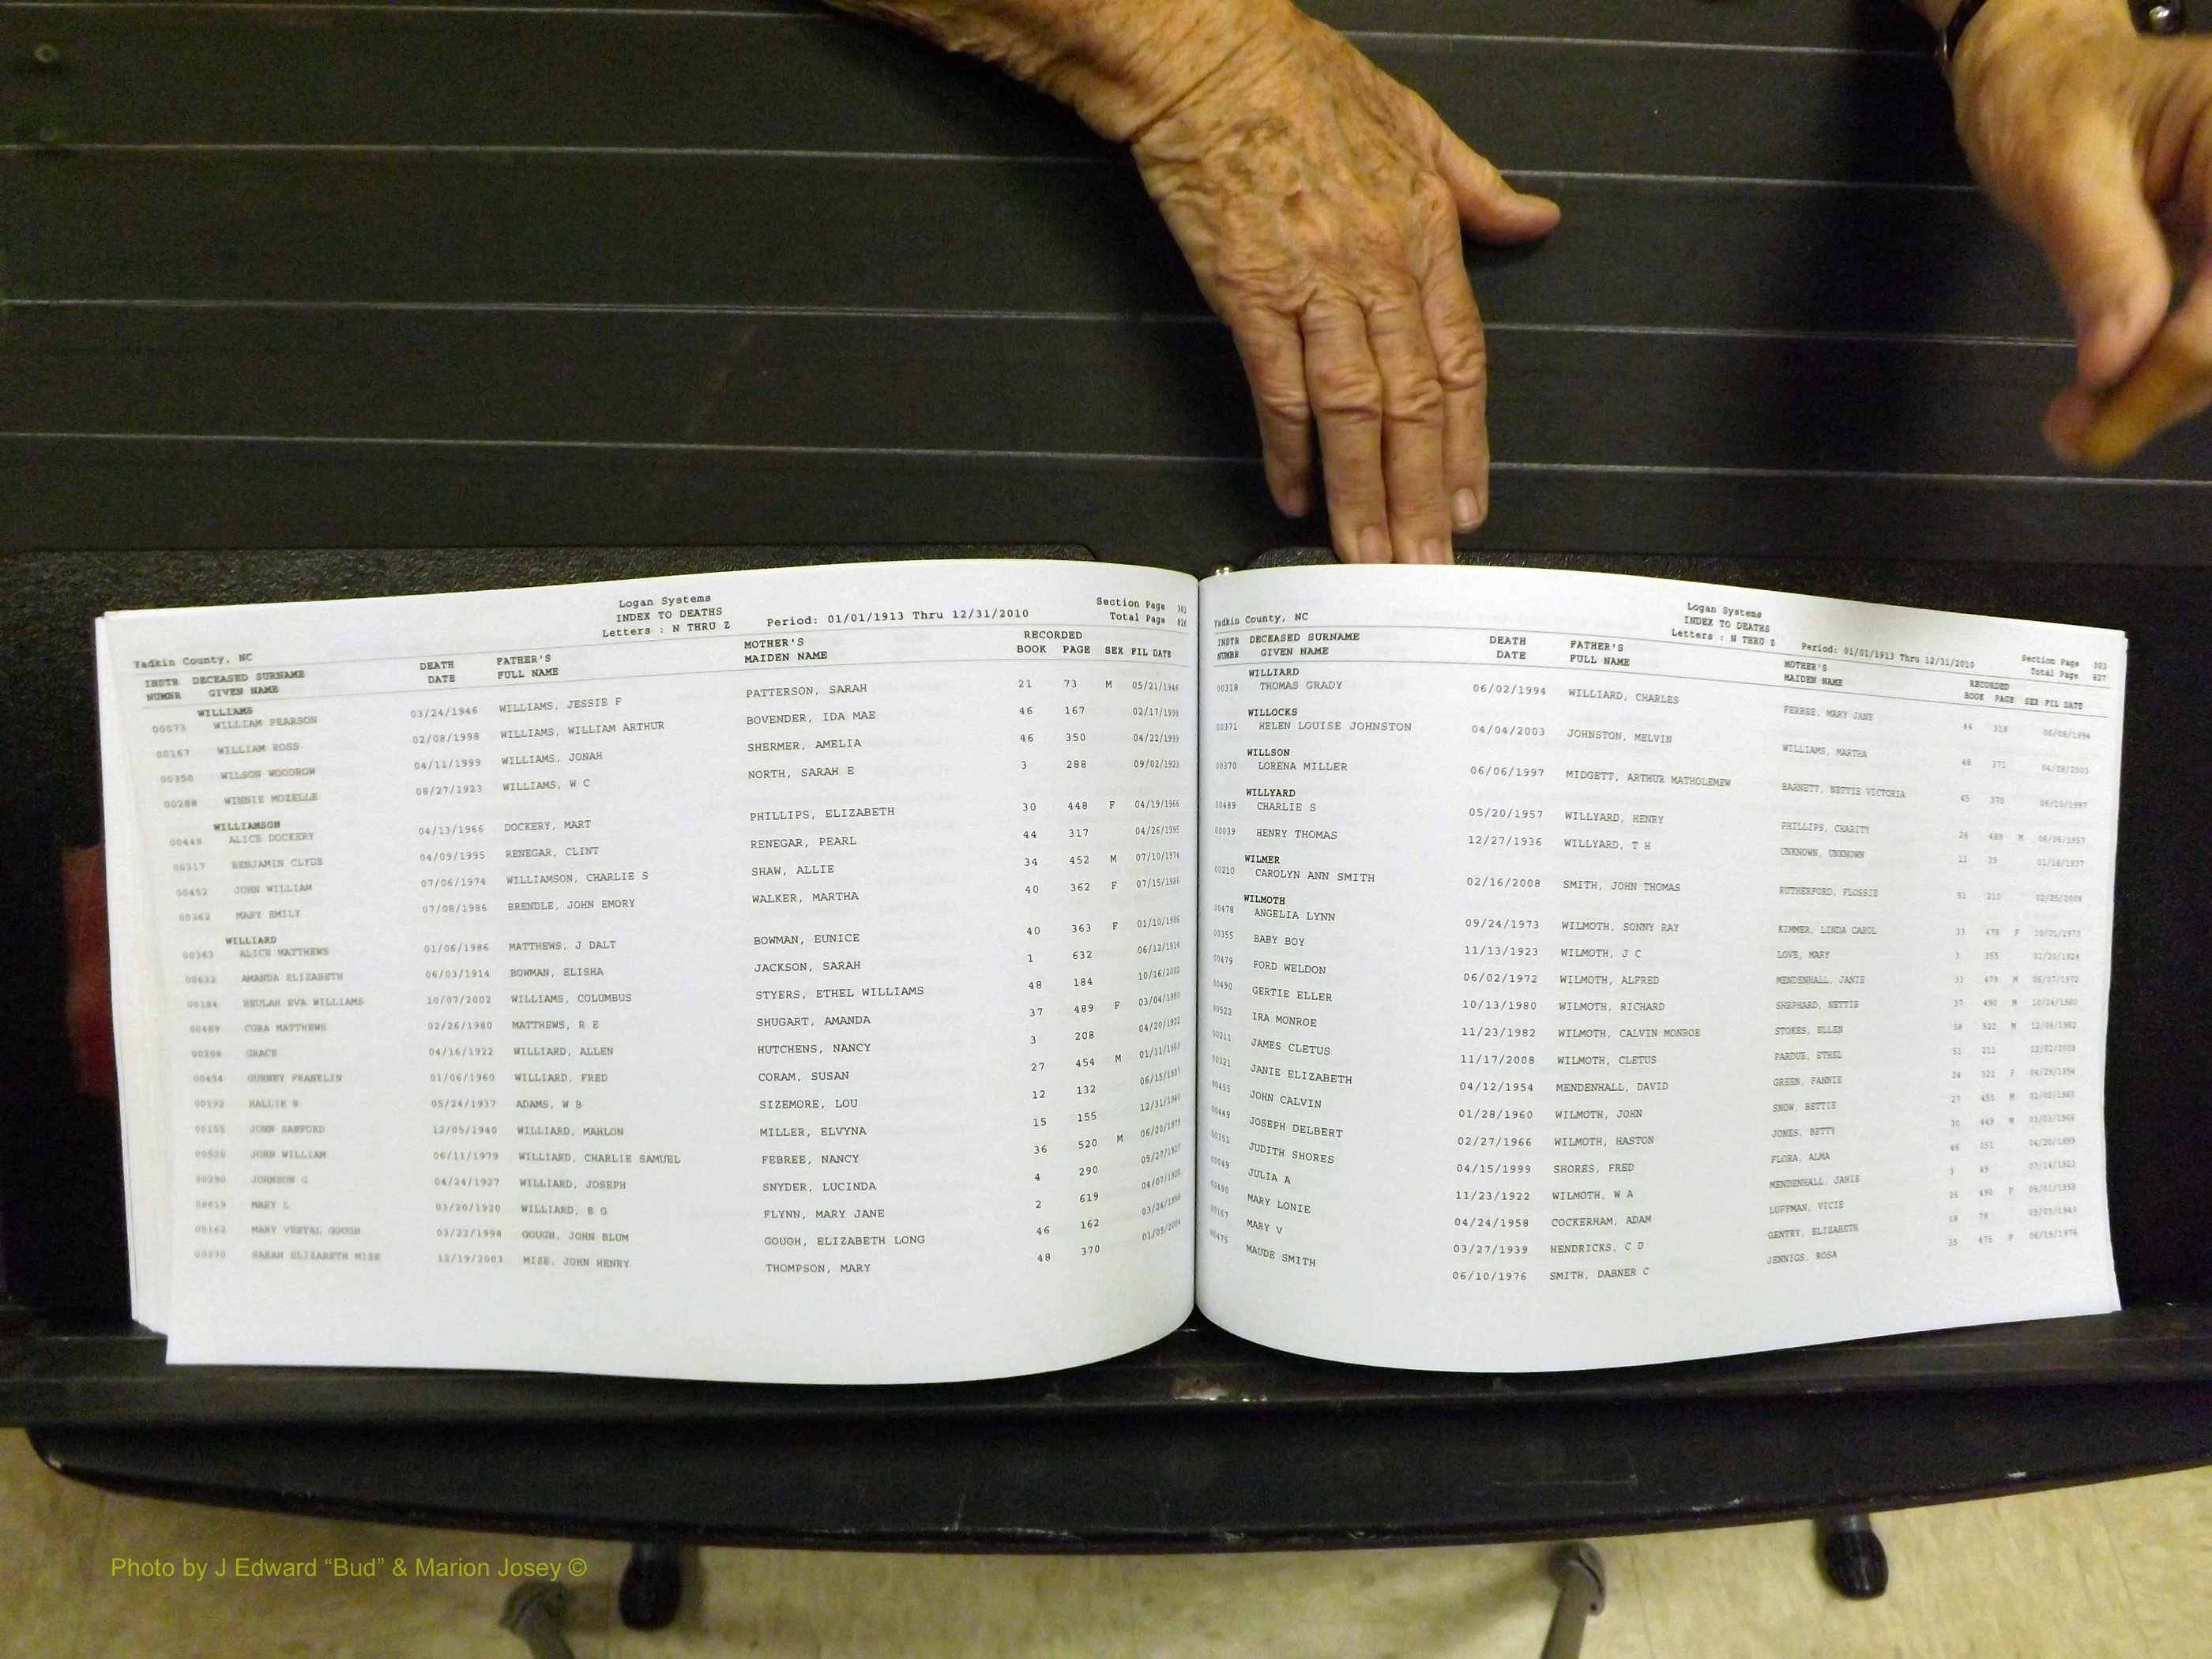 Logan Systems
INDEX TO DEATHS
Letters : N THRU Z
Period: 01/01/1913 Thru 12/31/2010
Section Page
Total Page
Yadkin County, NC
INSTR DECEASED SURNAME DEATH FATHER'S MOTHER'S RECORDED
NUMBR GIVEN NAME DATE FULL NAME MAIDEN NAME BOOK PAGE SEX FIL DATE
WILLIAMS
00073 WILLIAM PEARSON 03/24/1946 WILLIAMS, JESSIE F PATTERSON, SARAH 21 73 M 05/21/1946
00167 WILLIAM ROSS 02/08/1998 WILLIAMS, WILLIAM ARTHUR BOVENDER, IDA MAE 46 167 02/17/1998
00350 WILSON WOODROW 04/11/1999 WILLIAMS, JONAH SHERMER, AMELIA 46 350 04/22/1999
00288 WINNIE MOZELLE 08/27/1923 WILLIAMS, W C NORTH, SARAH E 3 288 09/02/1923
WILLIAMSON
00448 ALICE DOCKERY 04/13/1966 DOCKERY, MART PHILLIPS, ELIZABETH 30 448 F 04/19/1966
00317 BENJAMIN CLYDE 04/09/1995 RENEGAR, CLINT RENEGAR, PEARL 44 317 04/26/1995
00452 JOHN WILLIAM 07/06/1974 WILLIAMSON, CHARLIE S SHAW, ALLIE 34 452 M 07/10/1974
00362 MARY EMILY 07/08/1986 BRENDLE, JOHN EMORY WALKER, MARTHA 40 362 F 07/15/1986
WILLIARD
00363 ALICE MATTHEWS 01/06/1986 MATTHEWS, J DALT BOWMAN, EUNICE 40 363 F 01/10/1986
00632 AMANDA ELIZABETH 06/03/1914 BOWMAN, ELISHA JACKSON, SARAH 1 632 06/12/1914
00184 BEULAH EVA WILLIAMS 10/07/2002 WILLIAMS, COLUMBUS STYERS, ETHEL WILLIAMS 48 184 10/16/2002
00489 CORA MATTHEWS 02/26/1980 MATTHEWS, R E SHUGART, AMANDA 37 489 F 03/04/1980
00208 GRACE 04/16/1922 WILLIARD, ALLEN HUTCHENS, NANCY 3 208 04/20/1922
00454 GURNEY FRANKLIN 01/06/1960 WILLIARD, FRED CORAM, SUSAN 27 454 M 01/11/1960
00132 HALLIE B 05/24/1937 ADAMS, W B SIZEMORE, LOU 12 132 06/15/1937
00155 JOHN SANFORD 12/05/1940 WILLIARD, MAHLON MILLER, ELVYNA 15 155 12/31/1940
00520 JOHN WILLIAM 06/11/1979 WILLIARD, CHARLIE SAMUEL FEBREE, NANCY 36 520 M 06/20/1979
00290 JOHNSON G 04/24/1927 WILLIARD, JOSEPH SNYDER, LUCINDA 4 290 05/27/1927
00619 MARY L 03/20/1920 WILLIARD, E G FLYNN, MARY JANE 2 619 04/07/1920
00162 MARY VESTAL GOUGH 03/22/1998 GOUGH, JOHN BLUM GOUGH, ELIZABETH LONG 46 162 03/26/1998
00370 SARAH ELIZABETH MIZE 12/19/2003 MIZE, JOHN HENRY THOMPSON, MARY 48 370 01/05/2004
Logan Systems
INDEX TO DEATHS
Letters : N THRU Z
Period: 01/01/1913 Thru 12/31/2010
Section Page 303
Total Page 827
Yadkin County, NC
INSTR DECEASED SURNAME DEATH FATHER'S MOTHER'S RECORDED
NUMBR GIVEN NAME DATE FULL NAME MAIDEN NAME BOOK PAGE SEX FIL DATE
WILLIARD
00318 THOMAS GRADY 06/02/1994 WILLIARD, CHARLES FERREE, MARY JANE 44 318 06/08/1994
WILLOCKS
00371 HELEN LOUISE JOHNSTON 04/04/2003 JOHNSTON, MELVIN WILLIAMS, MARTHA 48 371 04/08/2003
WILLSON
00370 LORENA MILLER 06/06/1997 MIDGETT, ARTHUR MATHOLEMEW BARNETT, NETTIE VICTORIA 45 370 06/10/1997
WILLYARD
00489 CHARLIE S 05/20/1957 WILLYARD, HENRY PHILLIPS, CHARITY 26 489 M 06/06/1957
00039 HENRY THOMAS 12/27/1936 WILLYARD, T H UNKNOWN, UNKNOWN 39 01/18/1937
WILMER
00210 CAROLYN ANN SMITH 02/16/2008 SMITH, JOHN THOMAS RUTHERFORD, FLOSSIE 51 210 02/25/2008
WILMOTH
00478 ANGELIA LYNN 09/24/1973 WILMOTH, SONNY RAY KIMMER, LINDA CAROL 33 478 F 10/01/1973
00355 BABY BOY 11/13/1923 WILMOTH, J C LOVE, MARY 3 355 01/20/1924
00479 FORD WELDON 06/02/1972 WILMOTH, ALFRED MENDENHALL, JANIE 33 479 M 06/07/1972
00490 GERTIE ELLER 10/13/1980 WILMOTH, RICHARD SHEPHARD, NETTIE 37 490 M 10/24/1980
00522 IRA MONROE 11/23/1982 WILMOTH, CALVIN MONROE STOKES, ELLEN 38 522 M 12/06/1982
00211 JAMES CLETUS 11/17/2008 WILMOTH, CLETUS PARDUE, ETHEL 51 211 12/02/2008
00321 JANIE ELIZABETH 04/12/1954 MENDENHALL, DAVID GREEN, FANNIE 24 321 F 04/29/1954
00455 JOHN CALVIN 01/28/1960 WILMOTH, JOHN SNOW, BETTIE 27 455 M 02/02/1960
00449 JOSEPH DELBERT 02/27/1966 WILMOTH, HASTON JONES, BETTY 30 449 M 03/03/1966
00351 JUDITH SHORES 04/15/1999 SHORES, FRED FLORA, ALMA 46 351 04/20/1999
00049 JULIA A 11/23/1922 WILMOTH, W A MENDENHALL, JANIE 3 49 07/14/1923
00490 MARY LONIE 04/24/1958 COCKERHAM, ADAM LUFFMAN, VICIE 26 490 F 05/01/1958
MARY V 03/27/1939 HENDRICKS, C D GENTRY, ELIZABETH
00475 MAUDE SMITH 06/10/1976 SMITH, DABNER C JENNIGS, ROSA 35 475 F 06/15/1976
Photo by J Edward “Bud” & Marion Josey ©